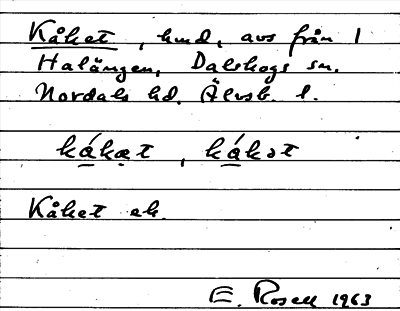 Kåket, hmd, avs från 1
Halängen, Dalskogs sn.
Nordals hd. Älvsb. l.
kákæt, kákət
Kåket ek.
E. Rosell 1963